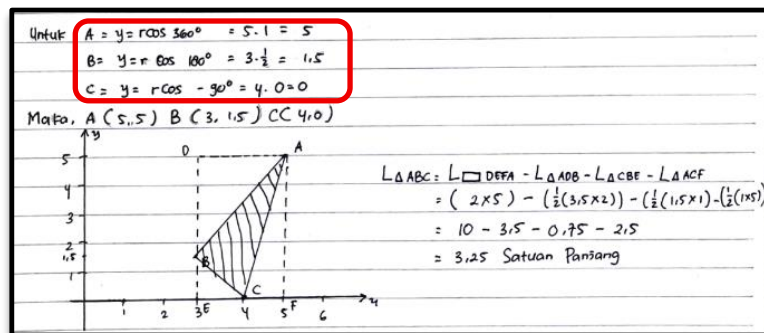 Untuk A = y = r cos 360° = 5 . 1 = 5
B = y = r cos 180° = 3 . 1/2 = 1,5
C = y = r cos - 90° = 4 . 0 = 0
Maka, A (5,5) B (3, 1,5) C(4,0)
y
D A
5
4
3
2
1,5
1
B
C
1 2 3 E 4 5 F 6
L△ABC = L▭DEFA - L△ADB - L△CBE - L△ACF
= (2×5) - (1/2(3,5×2)) - (1/2(1,5×1) - (1/2(1×5)
= 10 - 3,5 - 0,75 - 2,5
= 3,25 Satuan Panjang